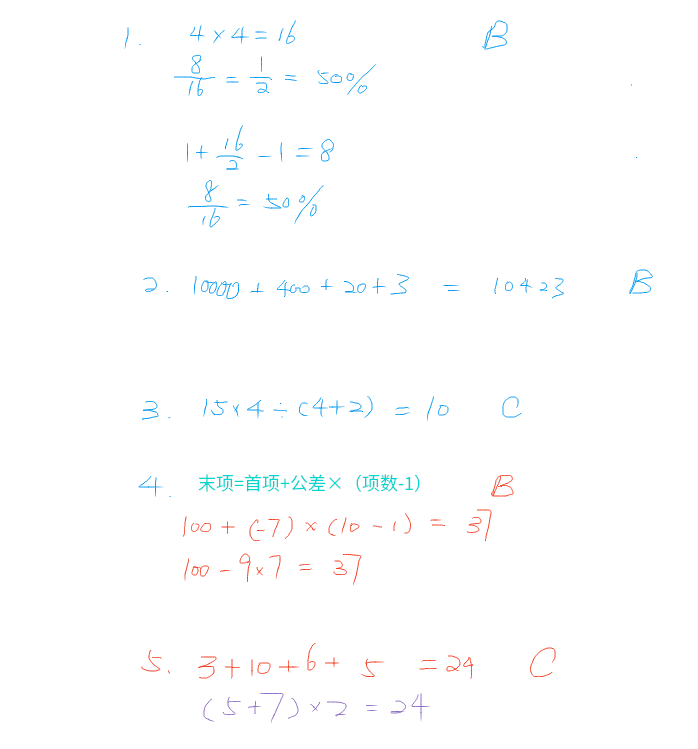 1. 4×4=16 B
8/16 = 1/2 = 50%
1+16/2-1=8
8/16 = 50%
2. 10000+400+20+3 = 10423 B
3. 15×4÷(4+2) = 10 C
4. 末项=首项+公差×（项数-1） B
100+(-7)×(10-1) = 37
100-9×7 = 37
5. 3+10+6+5 =24 C
(5+7)×2=24